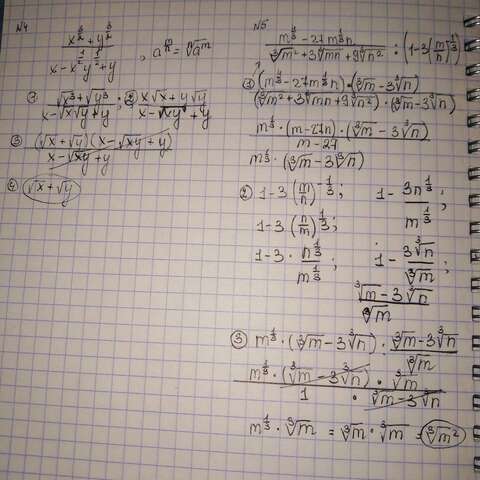 №4
(x^(3/2) + y^(3/2)) / (x - x^(1/2) y^(1/2) + y) , a^(m/n) = ⁿ√a^m
① (√x³ + √y³) / (x - √x√y + y) ; ② (x√x + y√y) / (x - √xy + y)
③ (√x + √y)(x - √xy + y) / (x - √xy + y)
④ √x + √y
№5
(m^(4/3) - 27m^(1/3)n) / (∛m² + 3∛mn + 9∛n²) : (1 - 3(m/n)^(-1/3))
① (m^(4/3) - 27m^(1/3)n) · (∛m - 3∛n)
(∛m² + 3∛mn + 9∛n²) · (∛m - 3∛n)
m^(1/3) · (m - 27n) · (∛m - 3∛n)
m - 27
m^(1/3) · (∛m - 3∛n)
② 1 - 3(m/n)^(-1/3) ; 1 - 3n^(1/3) / m^(1/3) ;
1 - 3(n/m)^(1/3) ;
1 - 3 · n^(1/3) / m^(1/3) ; 1 - 3∛n / ∛m ;
(∛m - 3∛n) / ∛m
③ m^(1/3) · (∛m - 3∛n) : (∛m - 3∛n) / ∛m
m^(1/3) · (∛m - 3∛n) · ∛m
1 · ∛m - 3∛n
m^(1/3) · ∛m = ∛m · ∛m = ∛m²